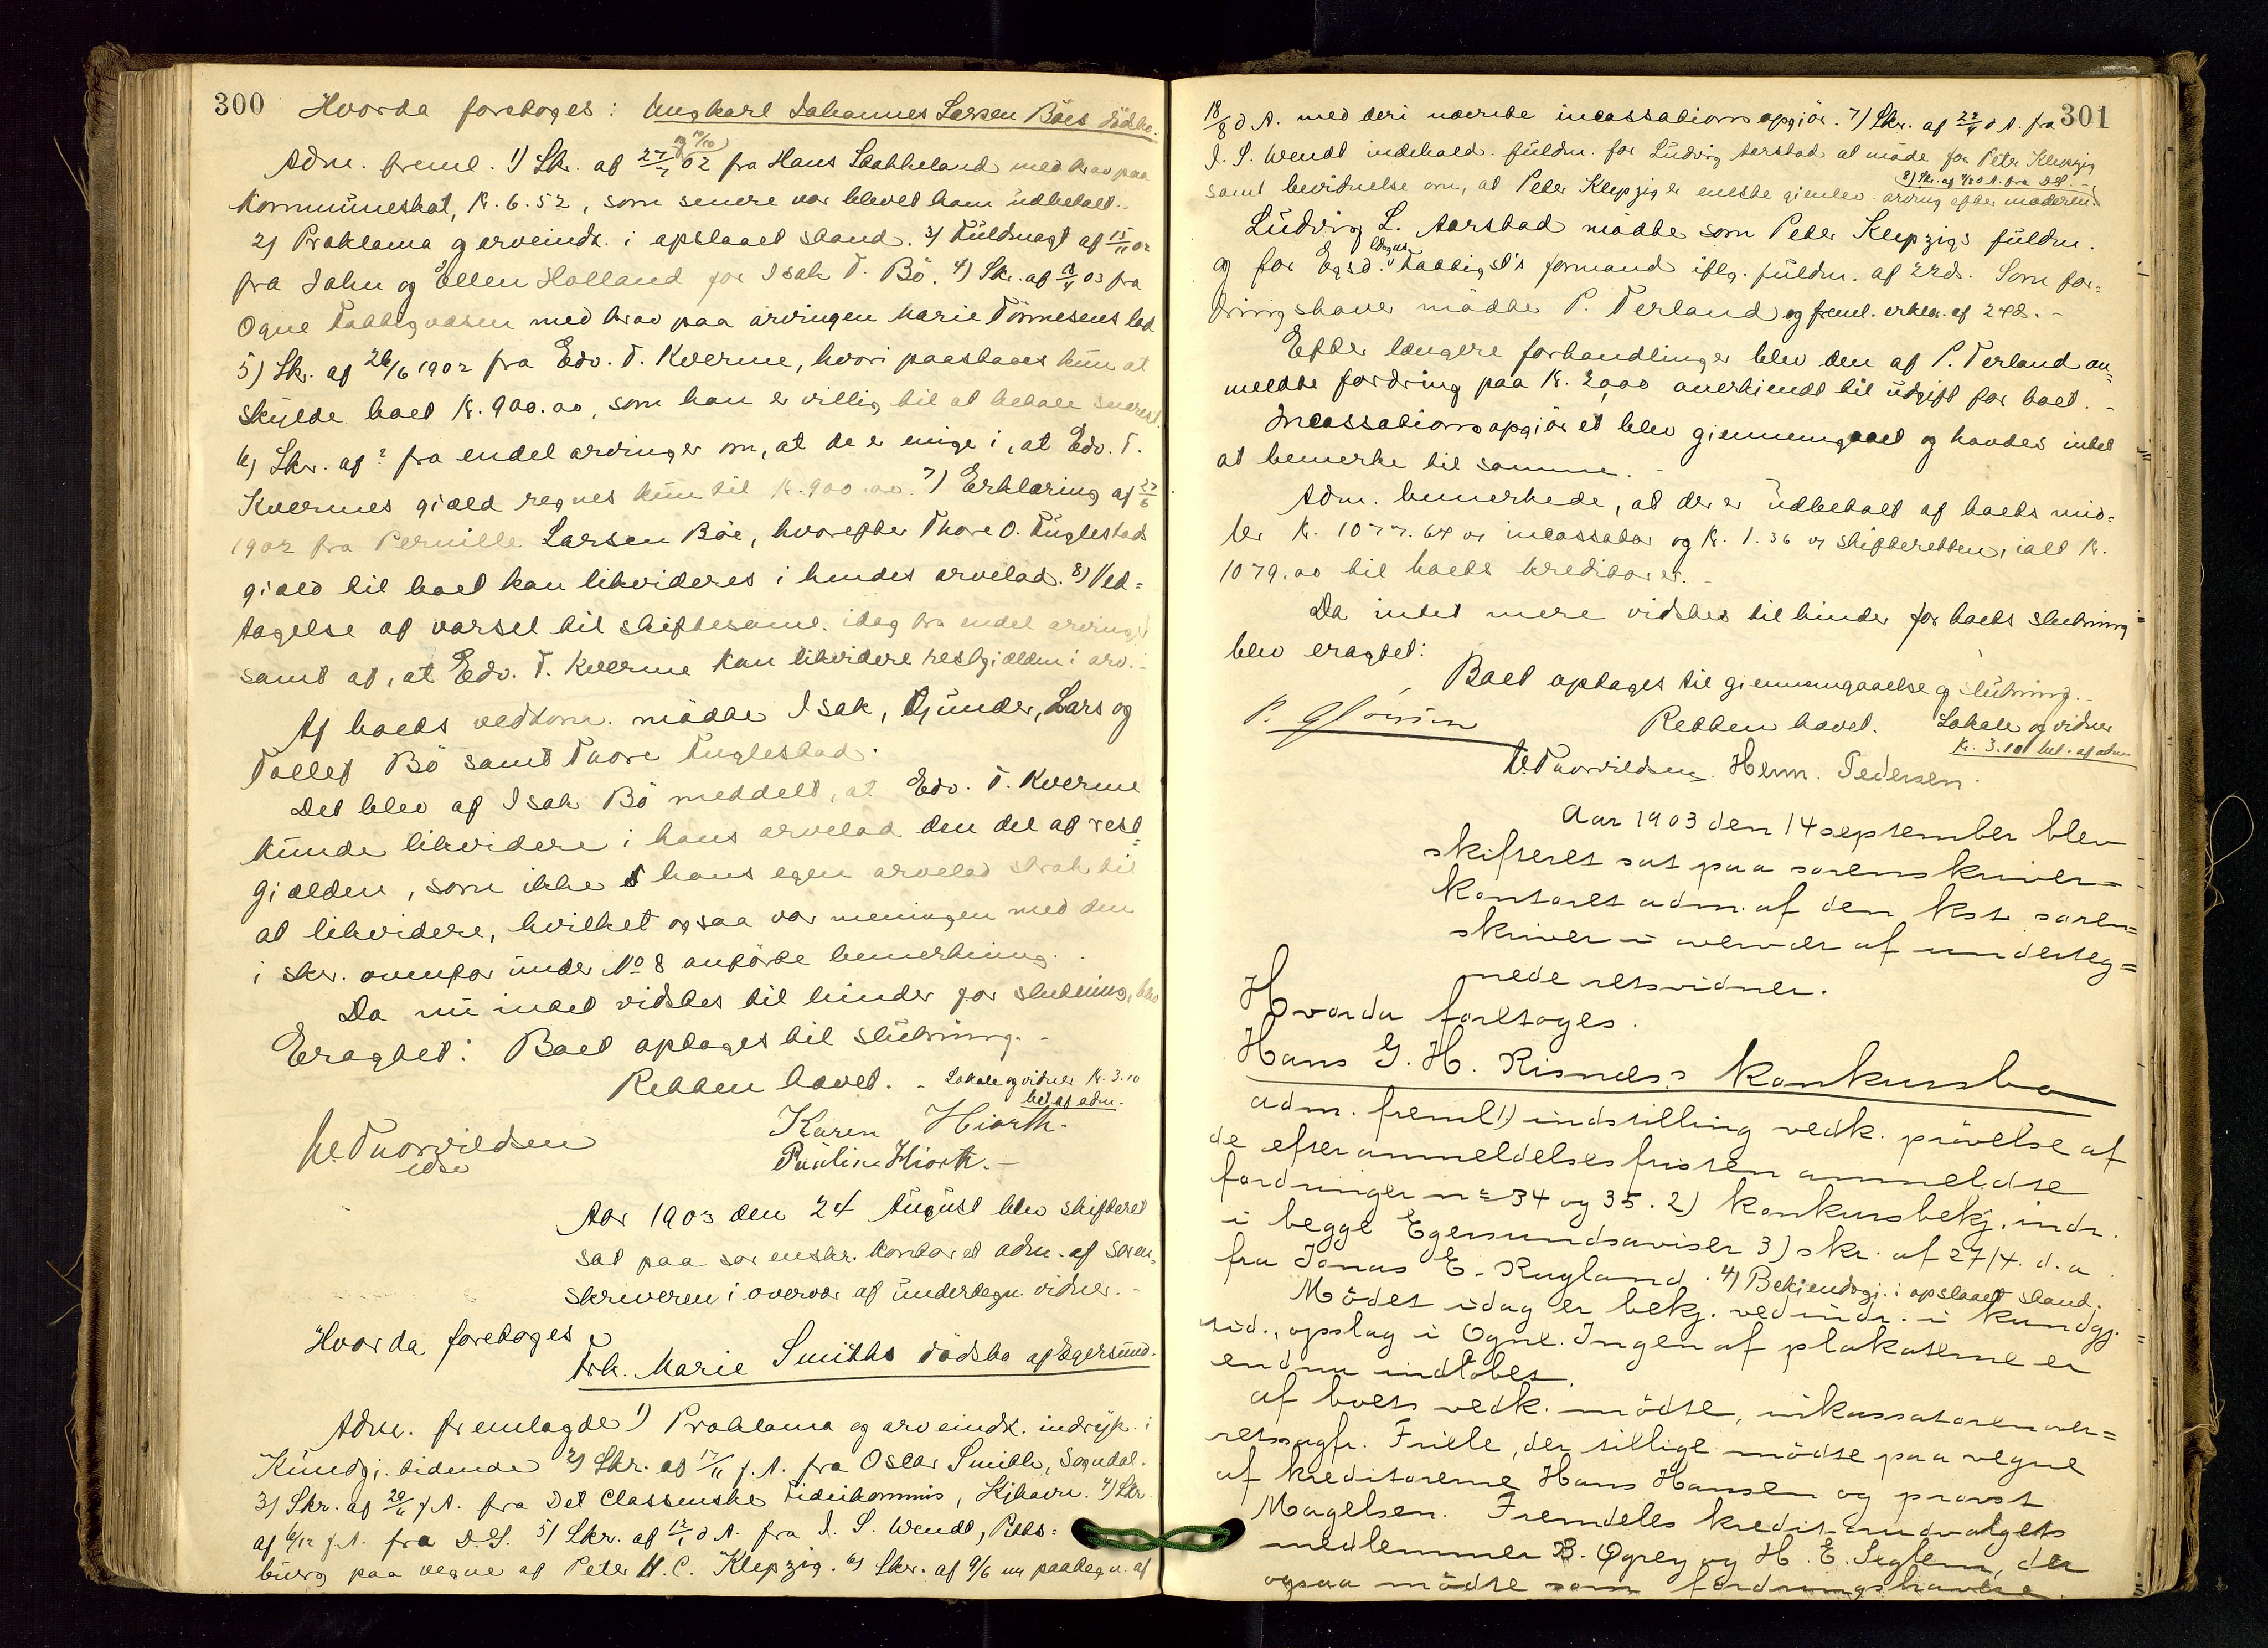 300 Hvorda foretages: Ungkarl Johannes Larsen Böes dödsbo.
Adm. freml. 1) Skr. af 27/7 02 og 10/10 fra Hans Stokkeland med krav paa
Kommuneskat, K. 6.52, som senere var blevet ham udbetalt.
2) Proklama og arveindk. i opslaaet stand. 3) Fuldmagt af 15/11 02
fra John og Ellen Holland for Isak T. Bö. 4) Skr. af 03 fra
Ogne Fattigvæsen med krav paa arvingen Marie Tönnesens lod
5) Skr. af 26/6 1902 fra Edv. T. Kverme, hvori paastaaes kun at
skylde boet K. 900.00, som han er villig til at betale snarest
6) Skr. af ? fra endel arvinger om, at de er enige i, at Edv. T.
Kvermes gjæld regnes kun til K. 900.00. 7) Erklæring af 27/6
1902 fra Pernille Larsen Böe, hvorefter Thore O. Fuglestads
gjæld til boet kan likvideres i hendes arvelod. 8) Ved-
tagelse af varsel til skiftesaml. idag fra endel arvinger
samt af, at Edv. T. Kverme kan likvidere restgjælden i arv.
Af boets vedkom. mödte Isak, Gunder, Lars og
Tollef Bö samt Tore Fuglestad.
Det blev af Isak Bö meddelt, at Edv. T. Kverme
kunde likvidere i hans arvelod den del af rest-
gjælden, som ikke hans egen arvelod strak til
at likvidere, hvilket ogsaa var meningen med den
i skr. ovenfor under No 8 anförte bemerkning.
Da nu intet vidstes til hinder for slutning, blev
Eragtet: Boet optages til slutning.
Retten hævet. Lokale og vidner K. 3.10
bet. af adm.
Torvildsen
Karen Hiorth.
edsv
Pauline Hiorth.
Aar 1903 den 24 August blev skifteret
sat paa sorenskr. kontoret adm. af soren-
skriveren i overvær af undertegn. vidner.
Hvorda foretoges
Frk. Marie Smiths dödsbo af Egersund.
Adm. fremlagde 1) Proklama og arveindk. indryk. i
Kundgj. tidende 2) Skr. af 17/11 f. A. fra Oscar Smith, Sogndal.
3) Skr. af 20/11 f. A. fra Det Classenske Fideikommis, Kjhavn. 4) Skr
af 6/12 f. A. fra D.S. 5) Skr. af 12/1 d A. fra J. S. Wendt, Pitts-
burg paa vegne af Peter H. C. Klepzig. 6) Skr. af 9/6 m paategn. af
301
18/8 d A. med deri nævnte incassationsopgjör. 7) Skr. af 22/4 d A. fra
J. S. Wendt indehold. fuldm. for Ludvig Aarstad at möde for Peter Klepzig
samt bevidnelse om, at Peter Klepzig er eneste gjenlev. arving efter moderen
8) Skr. af 4/8 d A. fra D.S.
Ludvig L. Aarstad mödte som Peter Klepzigs fuldm.
og for Egsd. ldsogns Fattigst's formand iflg. fuldm. af 22d. Som for-
dringshaver mödte P. Terland og freml. erklæ. af 24d.
Efter længere forhandlinger blev den af P. Terland an-
meldte fordring paa K. 2,000 anerkjendt til udgift for boet.
Incassationsopgjöret blev gjennemgaaet og havdes intet
at bemerke til samme.
Adm. bemerkede, at der er udbetalt af boets mid-
ler K. 1077.64 av incassator og K. 1.36 av skifteretten, ialt K.
1079.00 til boets kreditorer.
Da intet mere vidstes til hinder for boets slutning
blev eragtet:
Boet optages til gjennemgaaelse og slutning.
Retten hævet. Lokale og vidner
K. 3.10 bet. af adm
Torvildsen. Herm. Pedersen.
Aar 1903 den 14 september blev
skifteret sat paa sorenskriver-
kontoret adm. af den kst. soren-
skriver i overvær af underteg-
nede retsvidner.
Hvorda foretoges.
Hans G. H. Risnes's Konkursbo
adm. freml 1) indstilling vedk. prövelse af
de efter anmeldelsesfristen anmeldte
fordringer no 34 og 35. 2) Konkursbekj. indr.
i begge Egersundsaviser 3) skr. af 27/4. d. a
fra Jonas E. Rugland. 4) Bekjendtgj. i opslaaet stand.
Mödet idag er bekj. ved indr. i kundgj.
tid., opslag i Ogne. Ingen af plakaterne er
endnu indlöbet.
af boets vedk. mödte, inkassatoren over-
retssagfr. Friele, der tillige mödte paa vegne
af kreditorerne Hans Hansen og provst
Magelsen. Fremdeles kreditorudvalgets
medlemmer B. Ögrey og H. E. Seglem, der
ogsaa mödte som fordringshavere.